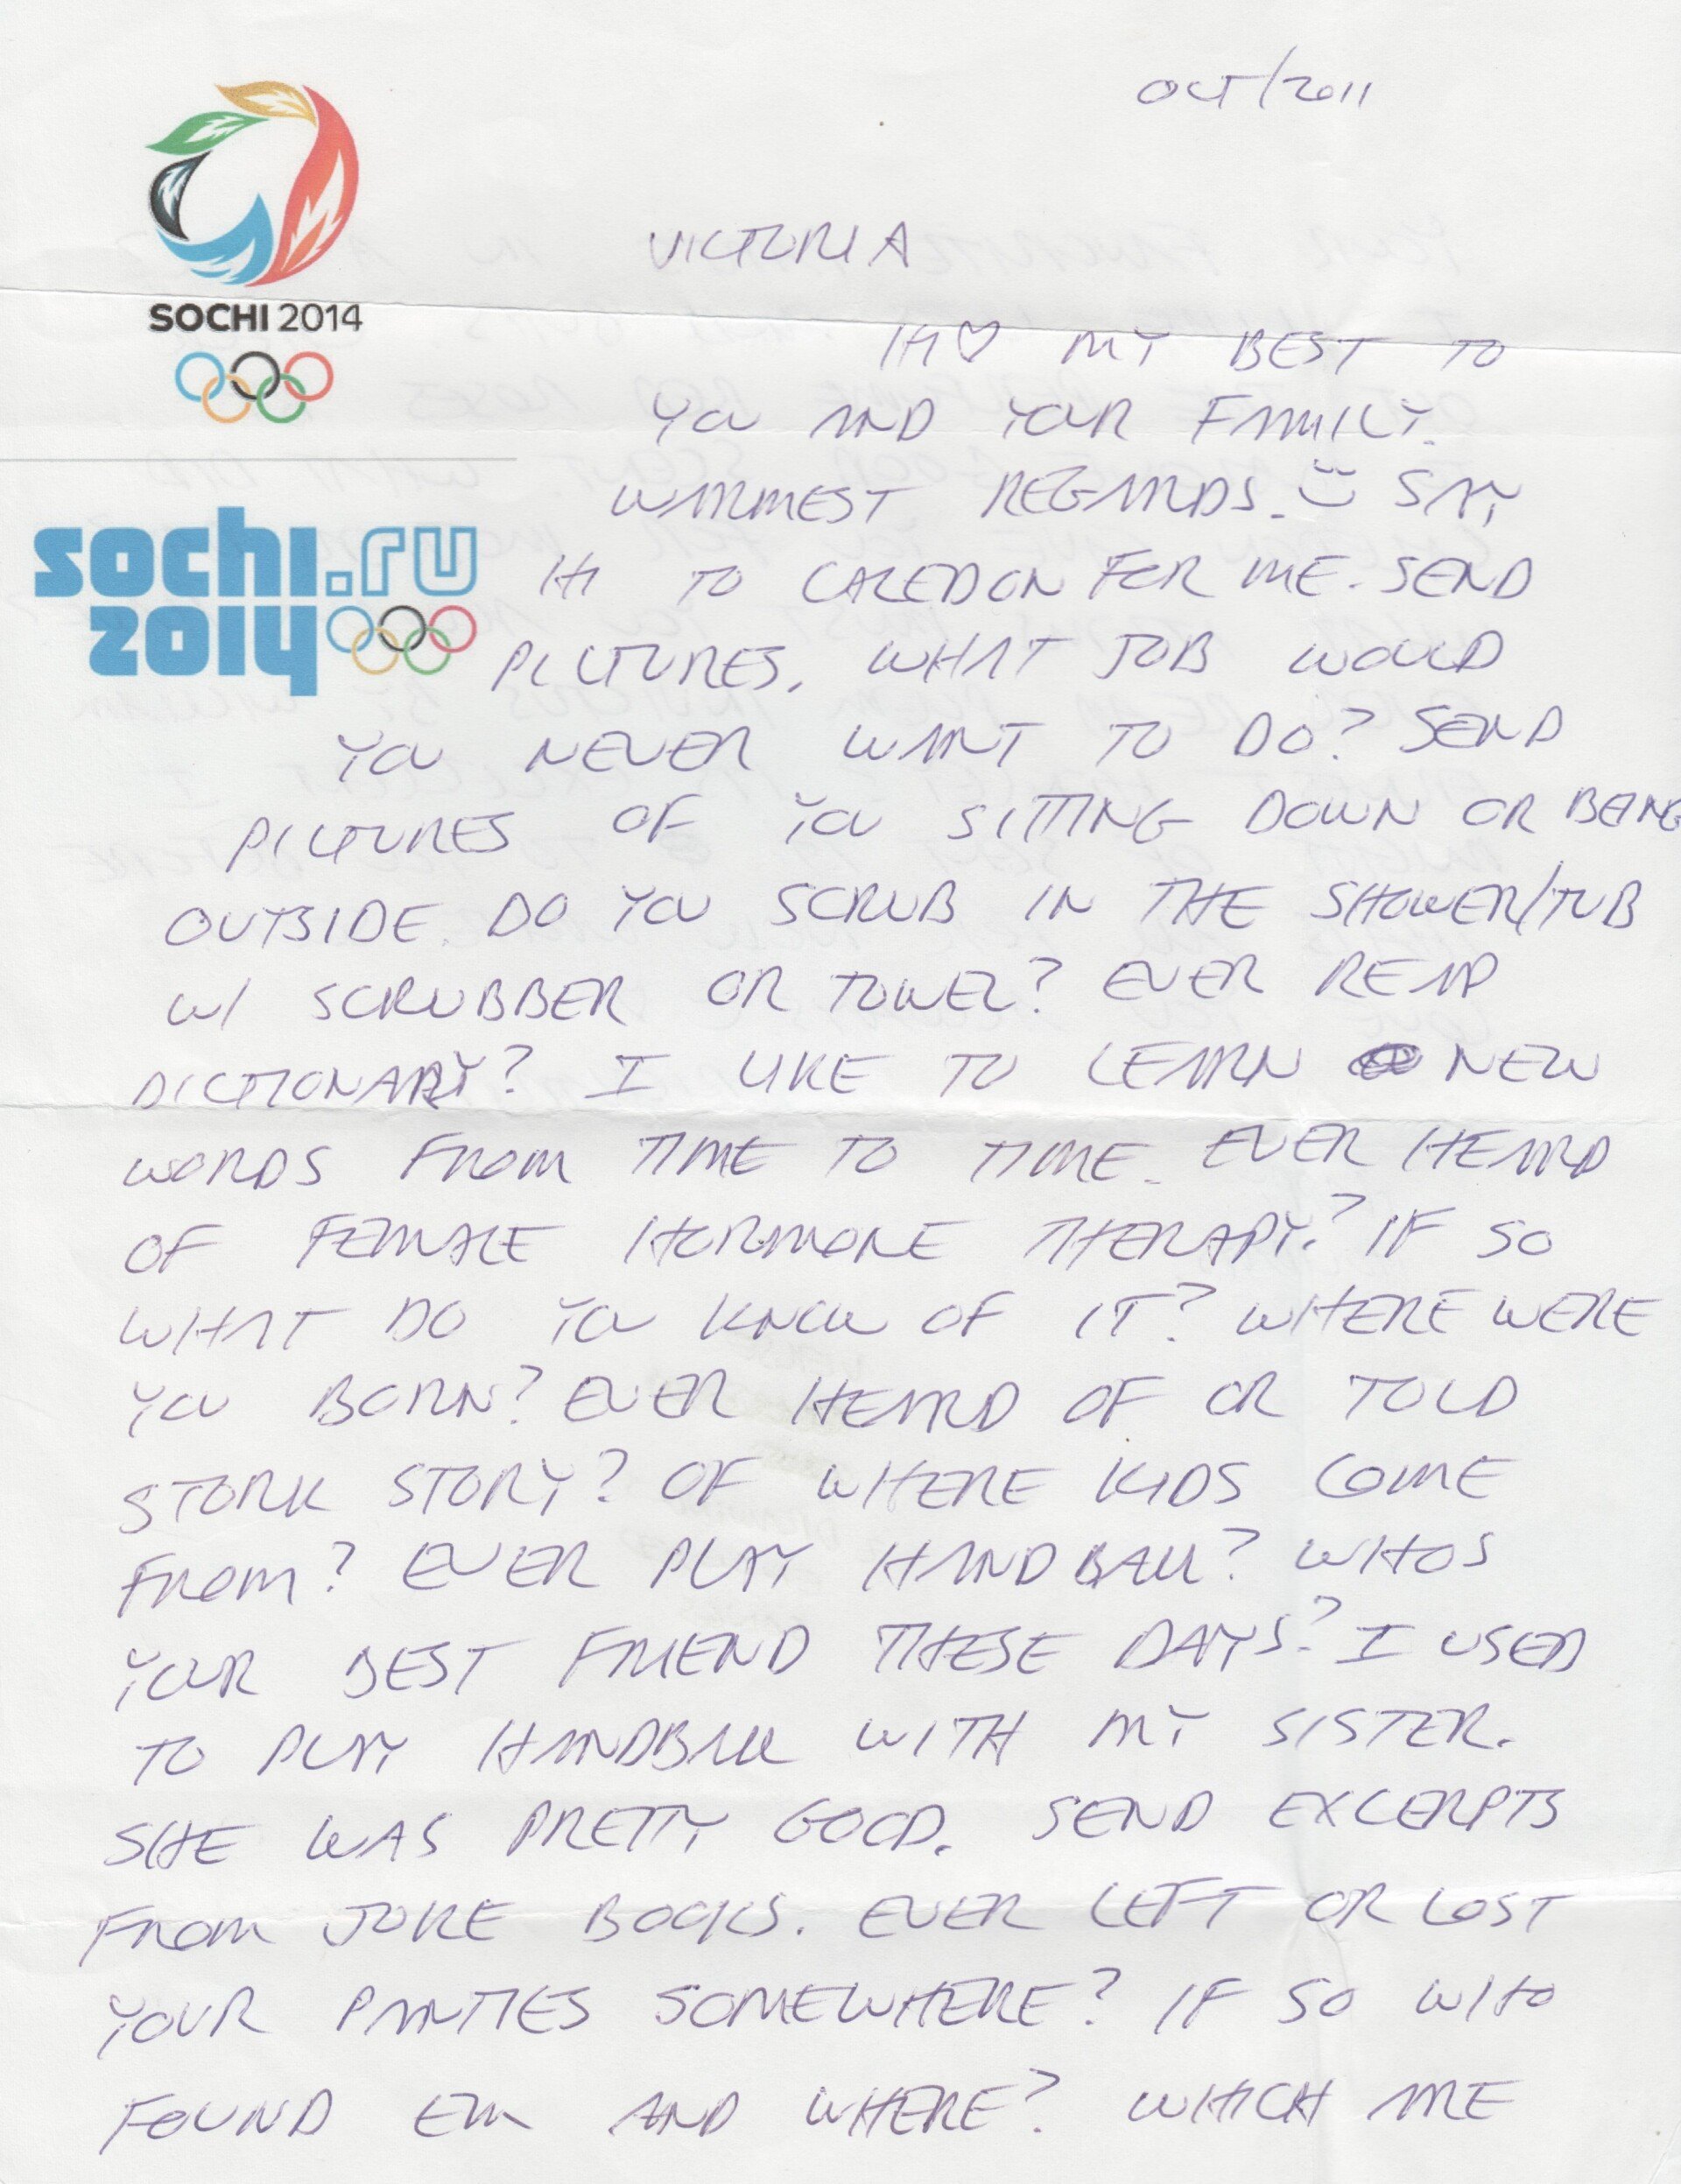 OCT/2011
VICTORIA
SOCHI 2014
HI♡ MY BEST TO
YOU AND YOUR FAMILY.
WARMEST REGARDS. SAY
sochi.ru
2014
HI TO CALEDON FOR ME. SEND
PICTURES. WHAT JOB WOULD
YOU NEVER WANT TO DO? SEND
PICTURES OF YOU SITTING DOWN OR BEING
OUTSIDE. DO YOU SCRUB IN THE SHOWER/TUB
W/ SCRUBBER OR TOWEL? EVER READ
DICTIONARY? I LIKE TO LEARN NEW
WORDS FROM TIME TO TIME. EVER HEARD
OF FEMALE HORMONE THERAPY? IF SO
WHAT DO YOU KNOW OF IT? WHERE WERE
YOU BORN? EVER HEARD OF OR TOLD
STORK STORY? OF WHERE KIDS COME
FROM? EVER PLAY HANDBALL? WHOS
YOUR BEST FRIEND THESE DAYS? I USED
TO PLAY HANDBALL WITH MY SISTER.
SHE WAS PRETTY GOOD. SEND EXCERPTS
FROM JOKE BOOKS. EVER LEFT OR LOST
YOUR PANTIES SOMEWHERE? IF SO WHO
FOUND EM AND WHERE? WHICH ARE